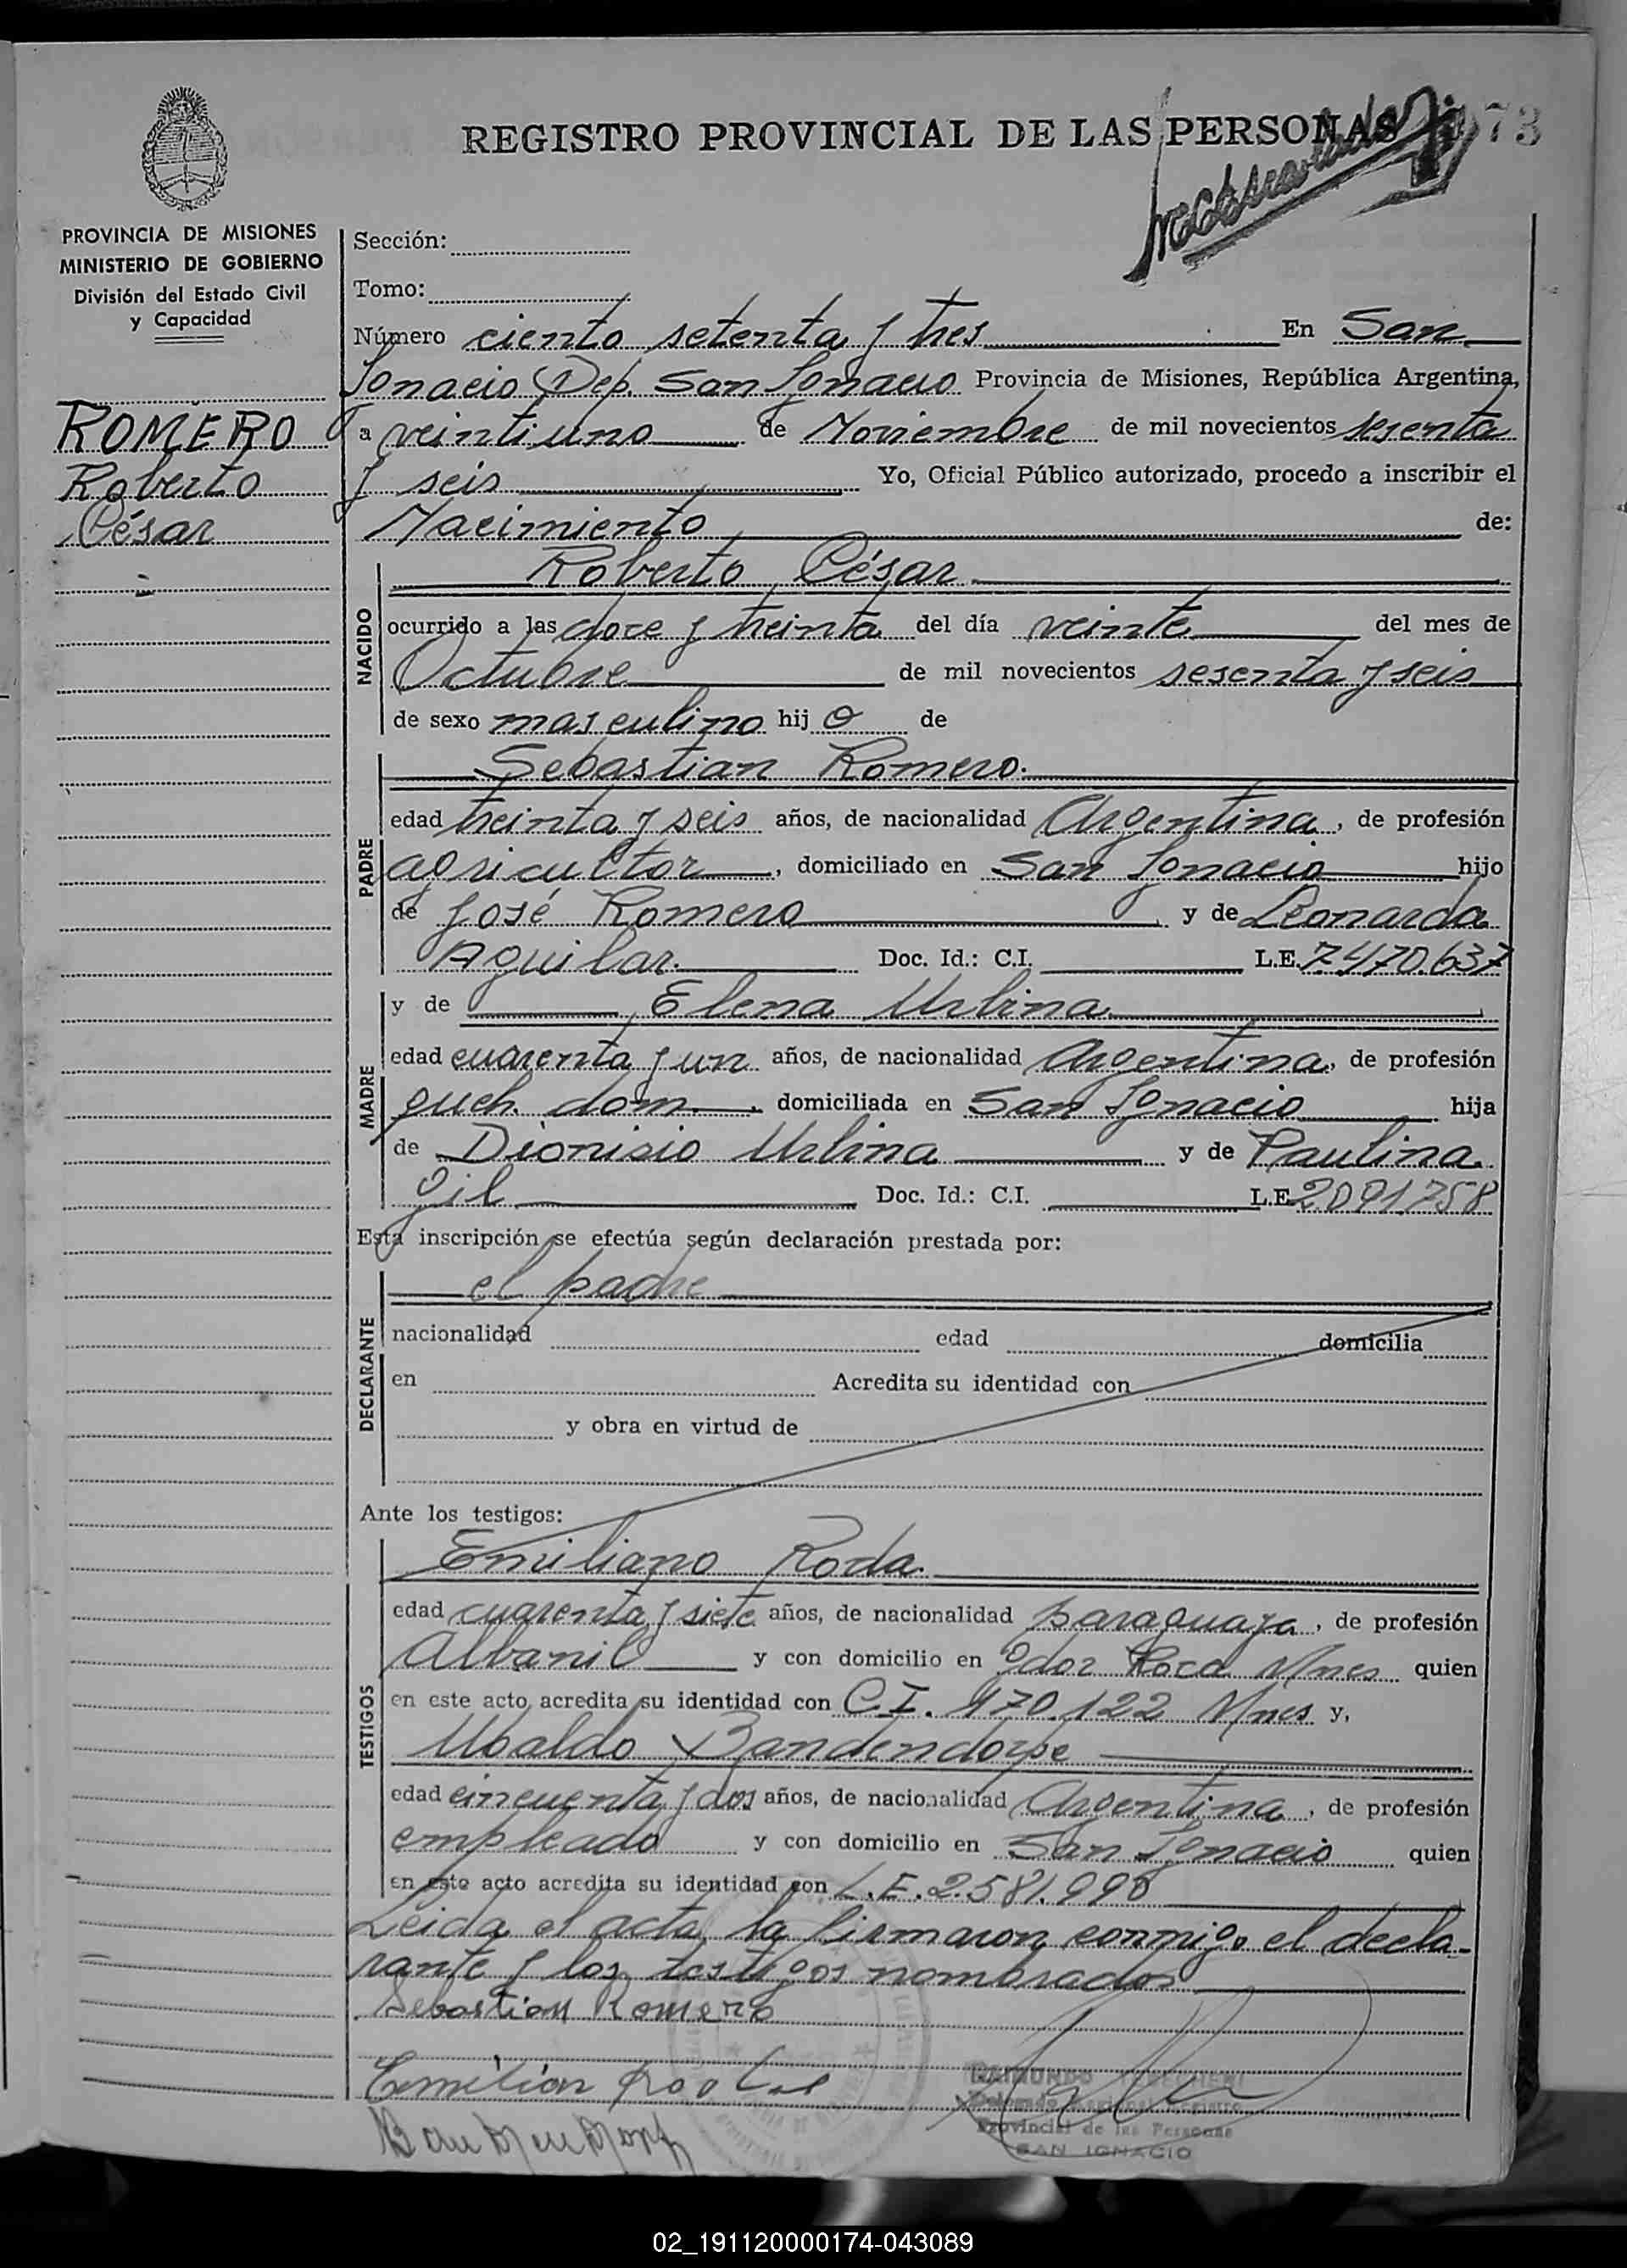 REGISTRO PROVINCIAL DE LAS PERSONAS
73
PROVINCIA DE MISIONES
MINISTERIO DE GOBIERNO
División del Estado Civil
y Capacidad
ROMERO
Roberto
César
Sección:
Tomo:
Número ciento setenta y tres En San
Ignacio Dep. San Ignacio Provincia de Misiones, República Argentina,
a veintiuno de Noviembre de mil novecientos sesenta
y seis Yo, Oficial Público autorizado, procedo a inscribir el
Nacimiento de:
NACIDO
Roberto César
ocurrido a las doce y treinta del día veinte del mes de
Octubre de mil novecientos sesenta y seis
de sexo masculino hij o de
PADRE
Sebastian Romero.
edad treinta y seis años, de nacionalidad Argentina, de profesión
agricultor, domiciliado en San Ignacio hijo
de José Romero y de Leonarda
Aguilar. Doc. Id.: C.I. L.E. 7.470.637
MADRE
y de Elena Urbina
edad cuarenta y un años, de nacionalidad Argentina, de profesión
queh. dom. domiciliada en San Ignacio hija
de Dionisio Urbina y de Paulina
Gil Doc. Id.: C.I. L.E. 2091758
Esta inscripción se efectúa según declaración prestada por:
DECLARANTE
el padre
nacionalidad edad domicilia
en Acredita su identidad con
y obra en virtud de
Ante los testigos:
TESTIGOS
Emiliano Roda.
edad cuarenta y siete años, de nacionalidad paraguaya, de profesión
Albanil y con domicilio en Gdor Roca Mnes quien
en este acto acredita su identidad con C.I. 170.122 Mnes y,
Ubaldo Bandendorpe
edad cincuenta y dos años, de nacionalidad Argentina, de profesión
empleado y con domicilio en San Ignacio quien
en este acto acredita su identidad con L.E. 2.581.998
Leida el acta, la firmaron conmigo el decla-
rante y los testigos nombrados
Sebastian Romero
RAIMUNDO
Provincial de las Personas
SAN IGNACIO
02_191120000174-043089